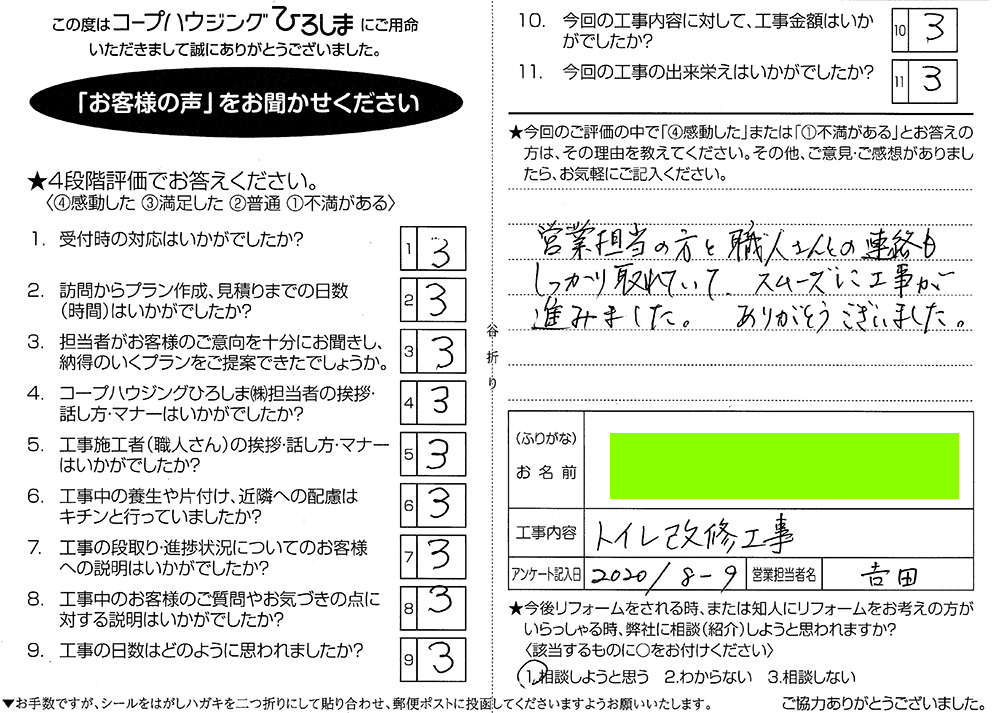 この度はコープハウジングひろしまにご用命
いただきまして誠にありがとうございました。
「お客様の声」をお聞かせください
★4段階評価でお答えください。
〈④感動した ③満足した ②普通 ①不満がある〉
1. 受付時の対応はいかがでしたか? 1 3
2. 訪問からプラン作成、見積りまでの日数
(時間)はいかがでしたか? 2 3
3. 担当者がお客様のご意向を十分にお聞きし、
納得のいくプランをご提案できたでしょうか。 3 3
4. コープハウジングひろしま㈱担当者の挨拶・
話し方・マナーはいかがでしたか? 4 3
5. 工事施工者(職人さん)の挨拶・話し方・マナー
はいかがでしたか? 5 3
6. 工事中の養生や片付け、近隣への配慮は
キチンと行っていましたか? 6 3
7. 工事の段取り・進捗状況についてのお客様
への説明はいかがでしたか? 7 3
8. 工事中のお客様のご質問やお気づきの点に
対する説明はいかがでしたか? 8 3
9. 工事の日数はどのように思われましたか? 9 3
▼お手数ですが、シールをはがしハガキを二つ折りにして貼り合わせ、郵便ポストに投函してくださいますようお願いいたします。
谷折り
10. 今回の工事内容に対して、工事金額はいか
がでしたか? 10 3
11. 今回の工事の出来栄えはいかがでしたか? 11 3
★今回のご評価の中で「④感動した」または「①不満がある」とお答えの
方は、その理由を教えてください。その他、ご意見・ご感想がありまし
たら、お気軽にご記入ください。
営業担当の方と職人さんとの連絡も
しっかり取れていて、スムーズに工事が
進みました。 ありがとうございました。
(ふりがな)
お名前
工事内容 トイレ改修工事
アンケート記入日 2020/8-9 営業担当者名 吉田
★今後リフォームをされる時、または知人にリフォームをお考えの方が
いらっしゃる時、弊社に相談(紹介)しようと思われますか?
〈該当するものに○をお付けください〉
1.相談しようと思う 2.わからない 3.相談しない
ご協力ありがとうございました。